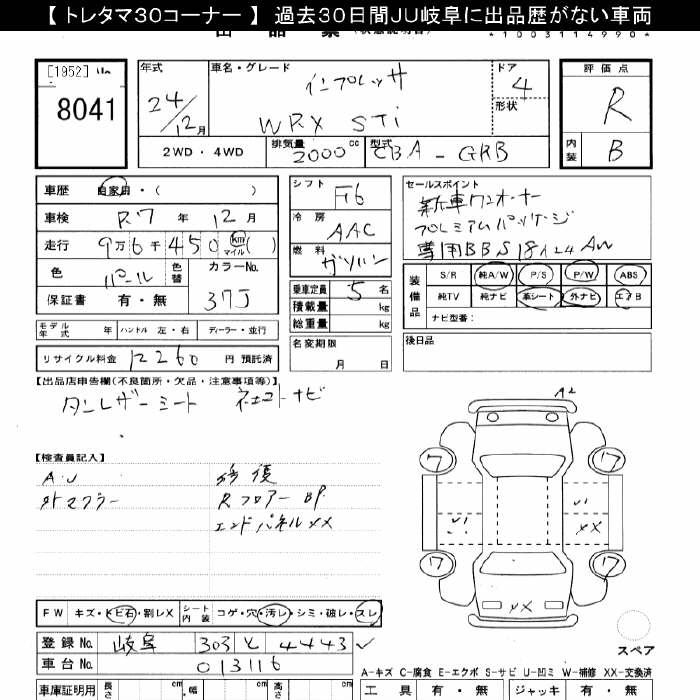 【 トレタマ３０コーナー 】 過去３０日間ＪＵ岐阜に出品歴がない車両
*1003114990*
[1952]
8041
年式
24/12月
車名・グレード
インプレッサ
WRX STi
ドア
4
形状
2WD・4WD
排気量 2000 cc
型式 CBA-GRB
評価点
R
内装 B
車歴 自家用・( )
車検 R7 年 12 月
走行 9万6千450 km マイル ( )
色 パール 色替 カラーNo. 37J
保証書 有・無
シフト F6
冷房 AAC
燃料 ガソリン
乗車定員 5 名
積載量 kg
総重量 kg
セールスポイント
新車ワンオーナー
プレミアムパッケージ
専用BBS18インチAW
装備品
S/R 純A/W P/S P/W ABS
純TV 純ナビ 革シート 外ナビ エアB
ナビ型番：
モデル年式 年 ハンドル 左・右 ディーラー・並行
名変期限
月 日
後日品
リサイクル料金 12260 円 預託済
【出品店申告欄(不良箇所・欠品・注意事項等)】
タンレザーシート
ナビ
【検査員記入】
修復
外マフラー
Rフロアー BP
エンドパネルXX
A2
7
7
U1
XX
7
7
XX
FW キズ・トビ石・割レX
シート内装 コゲ・穴・汚レ・シミ・破レ・スレ
登録No. 岐阜 303 と 4443
車台No. 013116
スペア
A-キズ C-腐食 E-エクボ S-サビ U-凹ミ W-補修 XX-交換済
車庫証明用 長さ cm 幅 cm 高さ cm
工具 有・無 ジャッキ 有・無